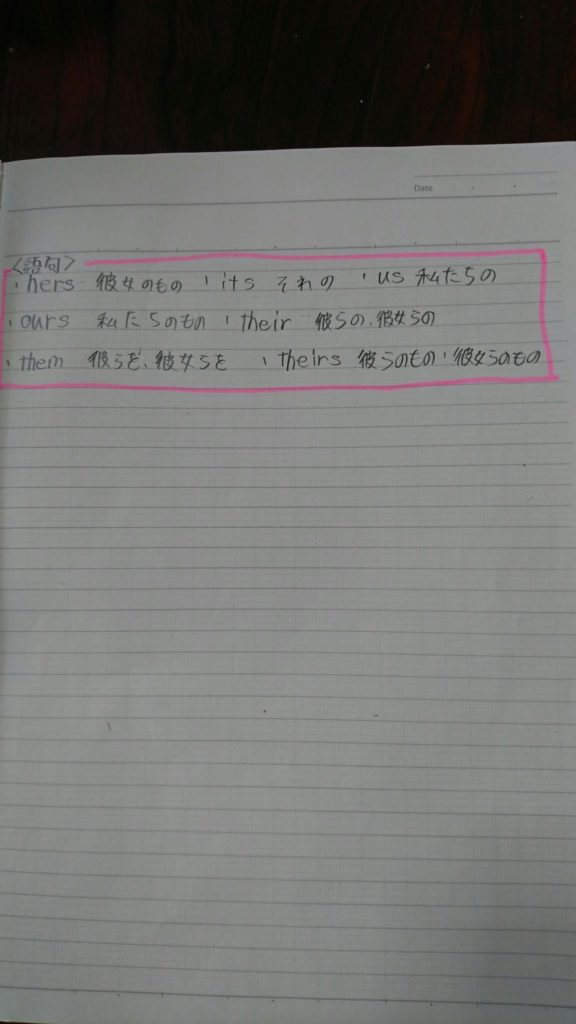 Date
<語句>
・hers 彼女のもの ・its それの ・us 私たちの
・ours 私たちのもの ・their 彼らの、彼女らの
・them 彼らを、彼女らを ・theirs 彼らのもの・彼女らのもの